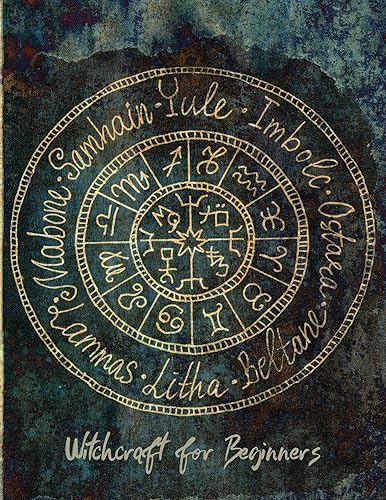 Samhain-Yule · Imbolc · Ostara · Beltane · Litha · Lammas · Mabone ·
Witchcraft for Beginners